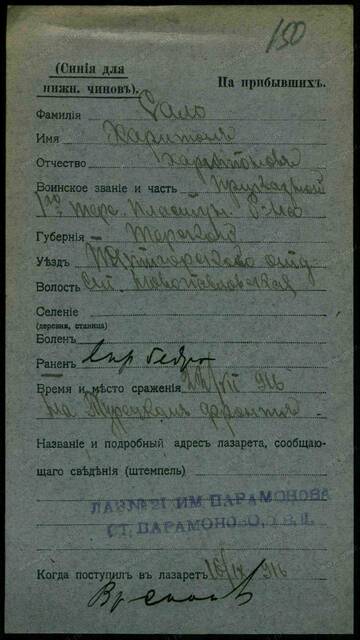 150
(Синія для
нижн. чиновъ).
На прибывшихъ.
Фамилія Сало
Имя Харитонъ
Отчество
Воинское званіе и часть Приказной
1го Терс. Пластун. б-на
Губернія Терская
Уѣздъ Пятигорского отд
Волость ст. Новопавловская
Селеніе
(деревня, станица)
Болен
Ранен бедро
Время и мѣсто сраженія 916
на Турецкомъ фронтѣ
Названіе и подробный адресъ лазарета, сообщаю-
щаго свѣдѣнія (штемпель)
ЛАЗАРЕТ ИМ. ПАРАМОНОВА
СТ. ПАРАМОНОВО,
Когда поступилъ въ лазаретъ 916